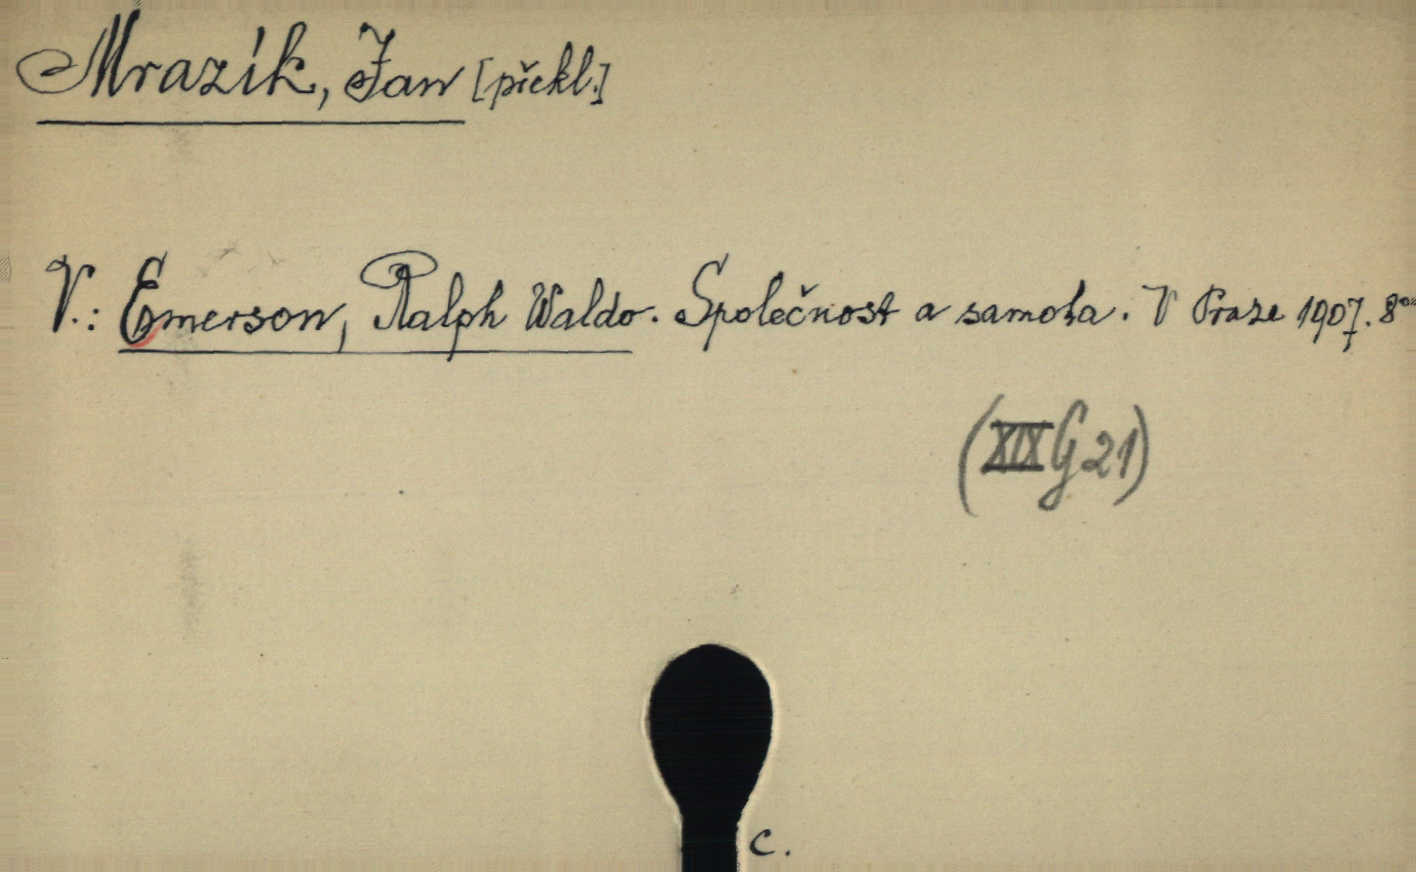 Mrazík, Jan [překl.]
V.: Emerson, Ralph Waldo. Společnost a samota. V Praze 1907. 8°
(XIX G 21)
c.